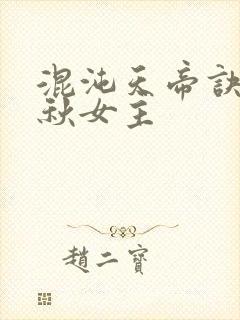 混沌天帝訣
秋女主
趙二寶